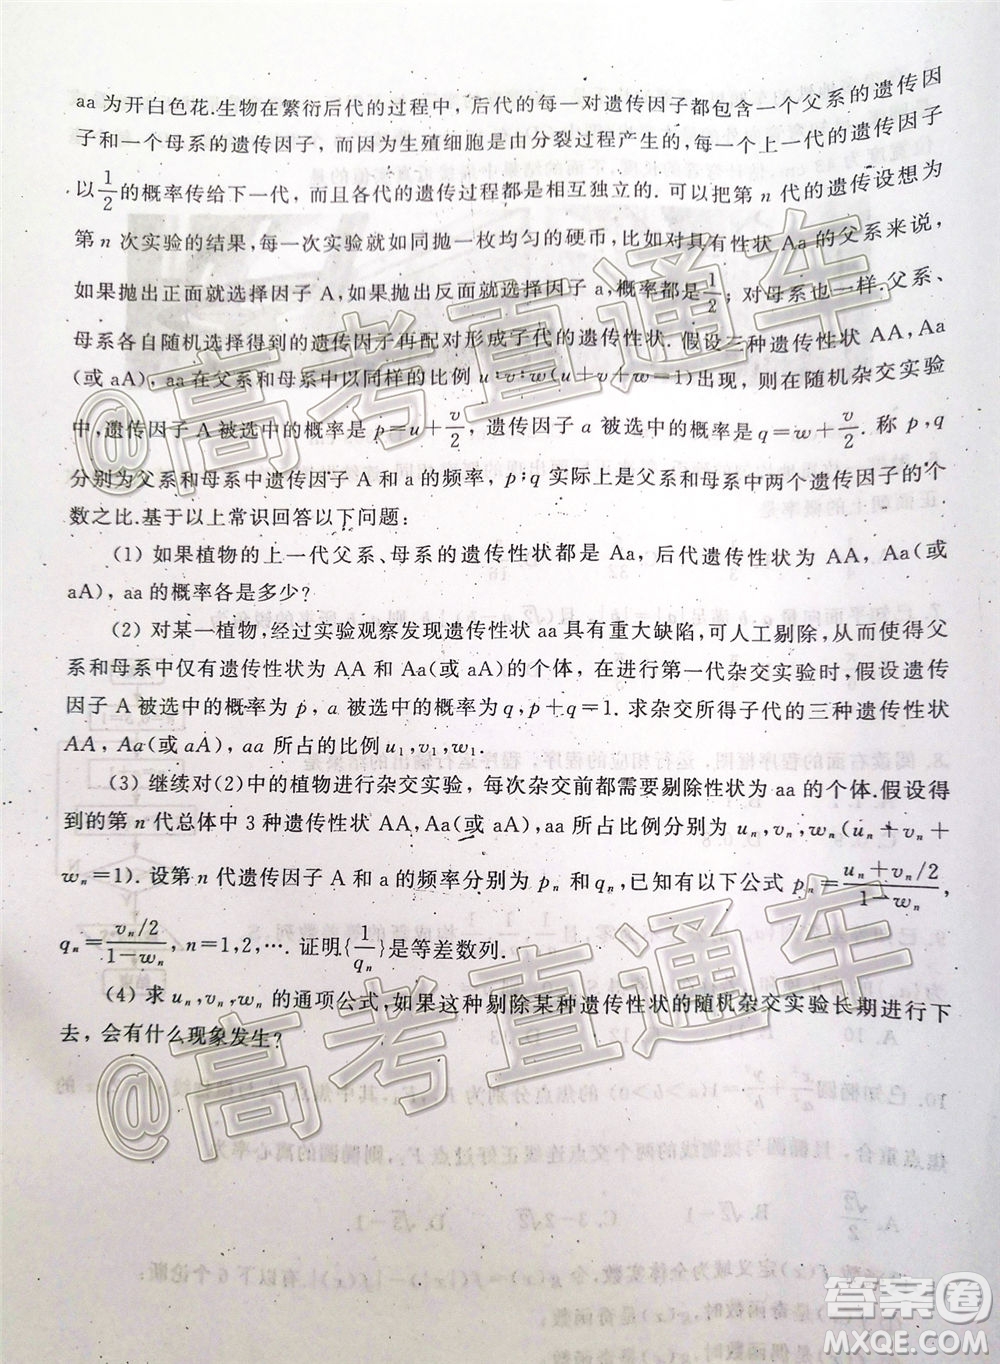 aa 为开白色花.生物在繁衍后代的过程中，后代的每一对遗传因子都包含一个父系的遗传因
子和一个母系的遗传因子，而因为生殖细胞是由分裂过程产生的，每一个上一代的遗传因子
以 1/2 的概率传给下一代，而且各代的遗传过程都是相互独立的. 可以把第 n 代的遗传设想为
第 n 次实验的结果，每一次实验就如同抛一枚均匀的硬币，比如对具有性状 Aa 的父系来说，
如果抛出正面就选择因子 A，如果抛出反面就选择因子 a，概率都是 1/2；对母系也一样. 父系、
母系各自随机选择得到的遗传因子再配对形成子代的遗传性状. 假设三种遗传性状 AA，Aa
(或 aA)，aa 在父系和母系中以同样的比例 u∶v∶w(u+v+w=1)出现，则在随机杂交实验
中，遗传因子 A 被选中的概率是 p=u+v/2，遗传因子 a 被选中的概率是 q=w+v/2. 称 p，q
分别为父系和母系中遗传因子 A 和 a 的频率，p∶q 实际上是父系和母系中两个遗传因子的个
数之比.基于以上常识回答以下问题：
(1) 如果植物的上一代父系、母系的遗传性状都是 Aa，后代遗传性状为 AA，Aa(或
aA)，aa 的概率各是多少？
(2) 对某一植物，经过实验观察发现遗传性状 aa 具有重大缺陷，可人工剔除，从而使得父
系和母系中仅有遗传性状为 AA 和 Aa(或 aA)的个体，在进行第一代杂交实验时，假设遗传
因子 A 被选中的概率为 p，a 被选中的概率为 q，p+q=1. 求杂交所得子代的三种遗传性状
AA，Aa(或 aA)，aa 所占的比例 u₁，v₁，w₁.
(3) 继续对(2)中的植物进行杂交实验，每次杂交前都需剔除性状为 aa 的个体.假设得
到的第 n 代总体中 3 种遗传性状 AA，Aa(或 aA)，aa 所占比例分别为 uₙ，vₙ，wₙ(uₙ+vₙ+
wₙ=1). 设第 n 代遗传因子 A 和 a 的频率分别为 pₙ 和 qₙ，已知有以下公式 pₙ=(uₙ+vₙ/2)/(1-wₙ)，
qₙ=(vₙ/2)/(1-wₙ)，n=1，2，…. 证明{1/qₙ}是等差数列.
(4) 求 uₙ，vₙ，wₙ 的通项公式，如果这种剔除某种遗传性状的随机杂交实验长期进行下
去，会有什么现象发生？
@高考直通车
@高考直通车
答案圈
MXQE.COM